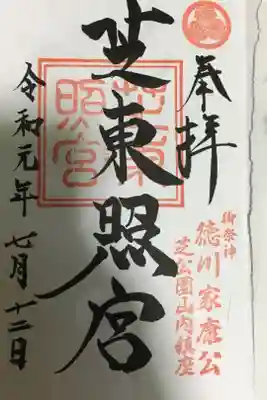 奉拝
御祭神
徳川家康公
芝公園山内鎮座
芝東照宮
芝東
照宮
令和元年七月十二日